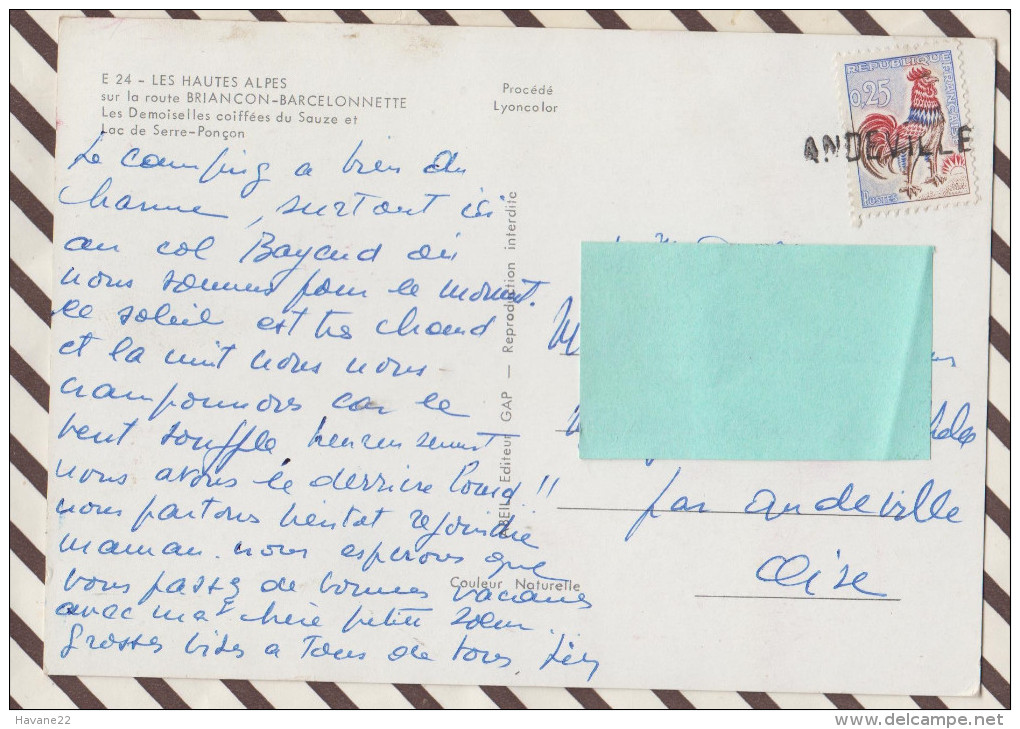 E 24 – LES HAUTES ALPES
sur la route BRIANCON-BARCELONNETTE
Les Demoiselles coiffées du Sauze et
Lac de Serre-Ponçon
Procédé
Lyoncolor
REPUBLIQUE
FRANÇAISE
0,25
POSTES
ANDEVILLE
Le camping a bien du
charme, surtout ici
au col Bayard où
nous sommes pour le moment.
le soleil est très chaud
et la nuit nous nous
cramponnons car le
vent souffle heureusement
nous avons le derrière lourd !!
nous partons bientot rejoindre
maman. nous esperons que
vous passez de bonnes vacances
avec ma chère petite soeur.
Grosses bises a Tous de tous.
Editeur GAP — Reproduction interdite
Couleur Naturelle
par Andeville
Oise
Havane22